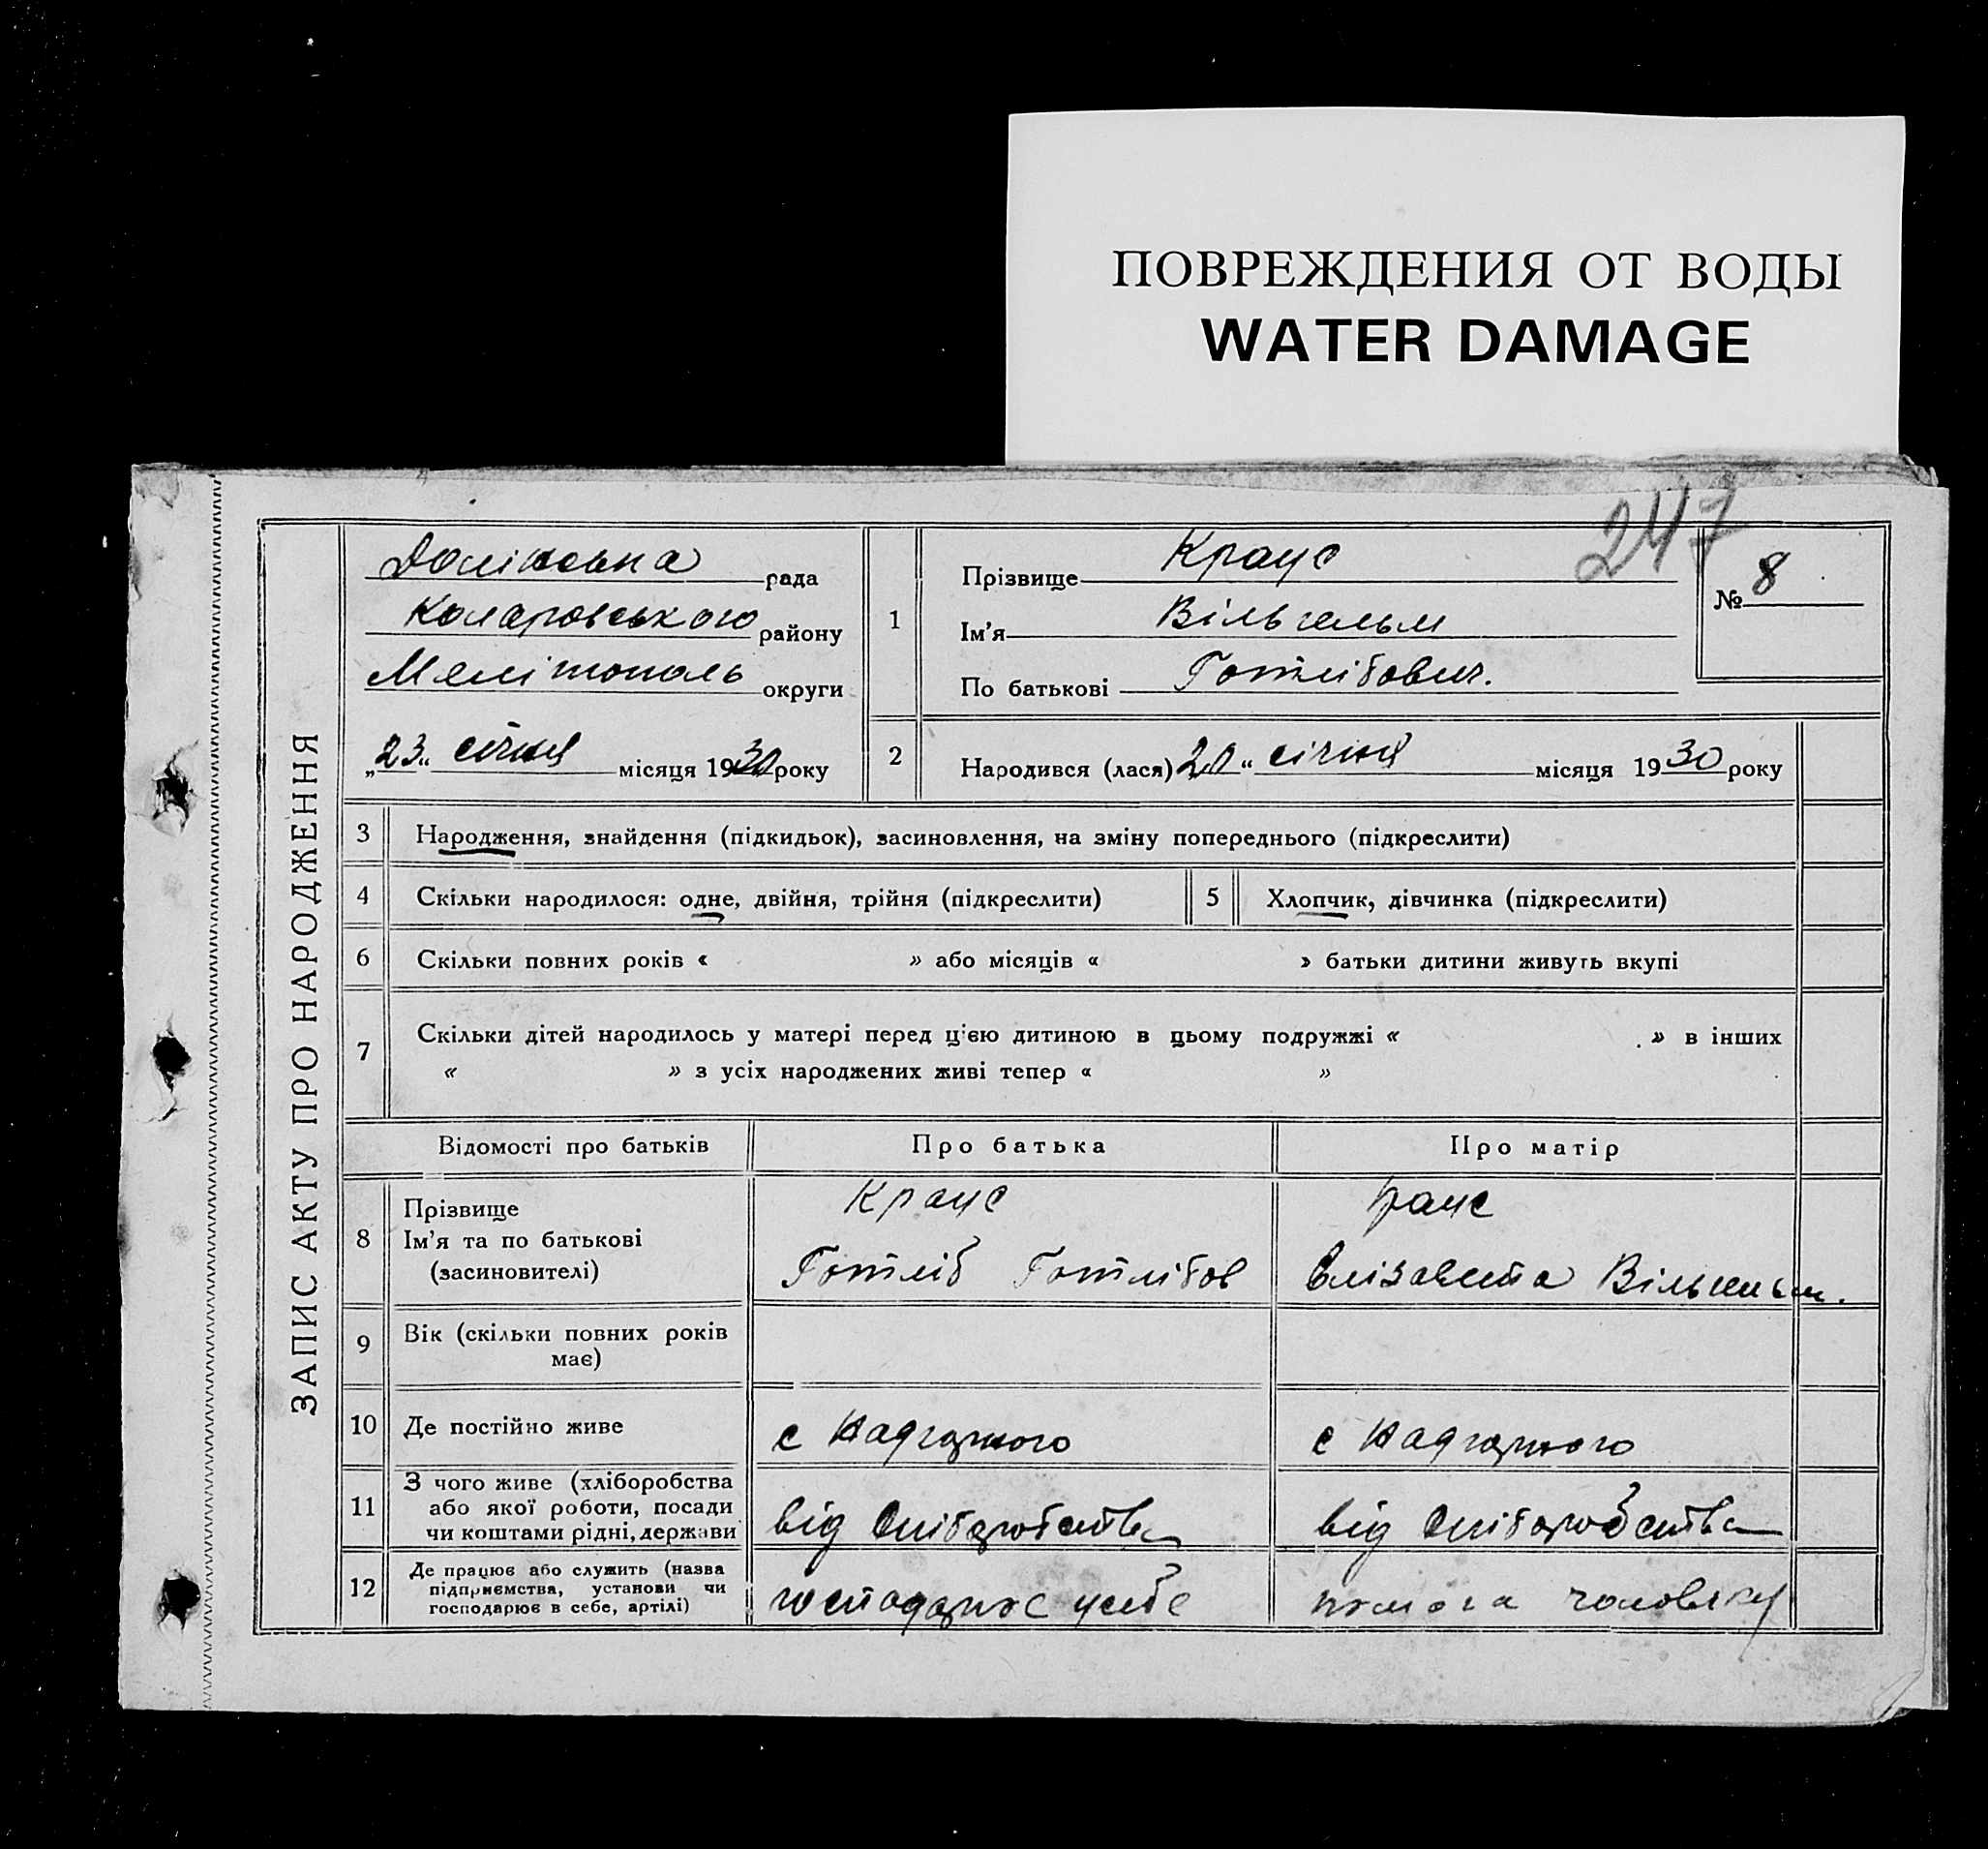 ПОВРЕЖДЕНИЯ ОТ ВОДЫ
WATER DAMAGE
247
ЗАПИС АКТУ ПРО НАРОДЖЕННЯ
Долінська рада
Коларовського району
Мелітополь округи
„23“ січня місяця 1930 року
1
Прізвище Краус
Ім’я Вільгельм
По батькові Готлібович.
№ 8
2
Народився (лася) 20 “ січня місяця 1930 року
3 Народження, знайдення (підкидьок), засиновлення, на зміну попереднього (підкреслити)
4 Скільки народилося: одне, двійня, трійня (підкреслити) 5 Хлопчик, дівчинка (підкреслити)
6 Скільки повних років « » або місяців « » батьки дитини живуть вкупі
7 Скільки дітей народилось у матері перед цією дитиною в цьому подружжі « » в інших
« » з усіх народжених живі тепер « »
Відомості про батьків Про батька Про матір
8 Прізвище
Ім’я та по батькові
(засиновителі)
Краус
Готліб Готлібов
Краус
Єлізавета Вільгельм.
9 Вік (скільки повних років
має)
10 Де постійно живе
с Надгорного
с Надгорного
11 З чого живе (хліборобства
або якої роботи, посади
чи коштами рідні, держави
від хліборобства
від хліборобства
12 Де працює або служить (назва
підприємства, установи чи
господарює в себе, артілі)
господарює у себе
помога чоловіку